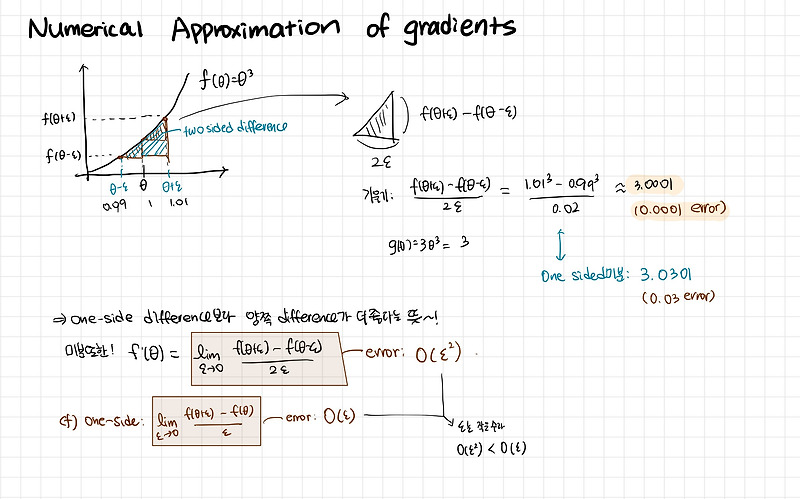 Numerical Approximation of gradients
f(θ)=θ³
f(θ+ε)
f(θ-ε)
two sided difference
θ-ε θ θ+ε
0.99 1 1.01
f(θ+ε) - f(θ-ε)
2ε
기울기: f(θ+ε) - f(θ-ε) / 2ε = 1.01³ - 0.99³ / 0.02 ≈ 3.0001
(0.0001 error)
g(θ)=3θ³ = 3
One sided미분: 3.0301
(0.03 error)
⇒ one-side difference보다 양쪽 difference가 더 좋다는 뜻~!
미분또한! f'(θ) = lim ε→0 f(θ+ε) - f(θ-ε) / 2ε error: O(ε²)
cf) one-side: lim ε→0 f(θ+ε) - f(θ) / ε error: O(ε)
ε는 작은수라
O(ε²) < O(ε)